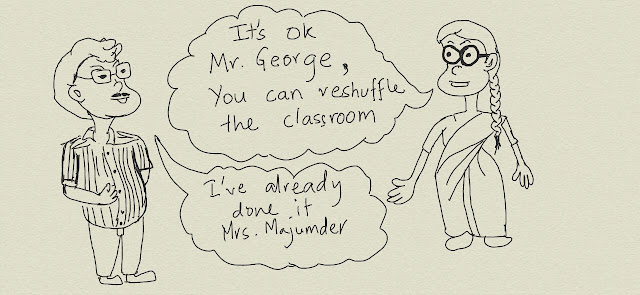 It's ok
Mr. George,
You can reshuffle
the classroom
I've already
done it
Mrs. Majumder